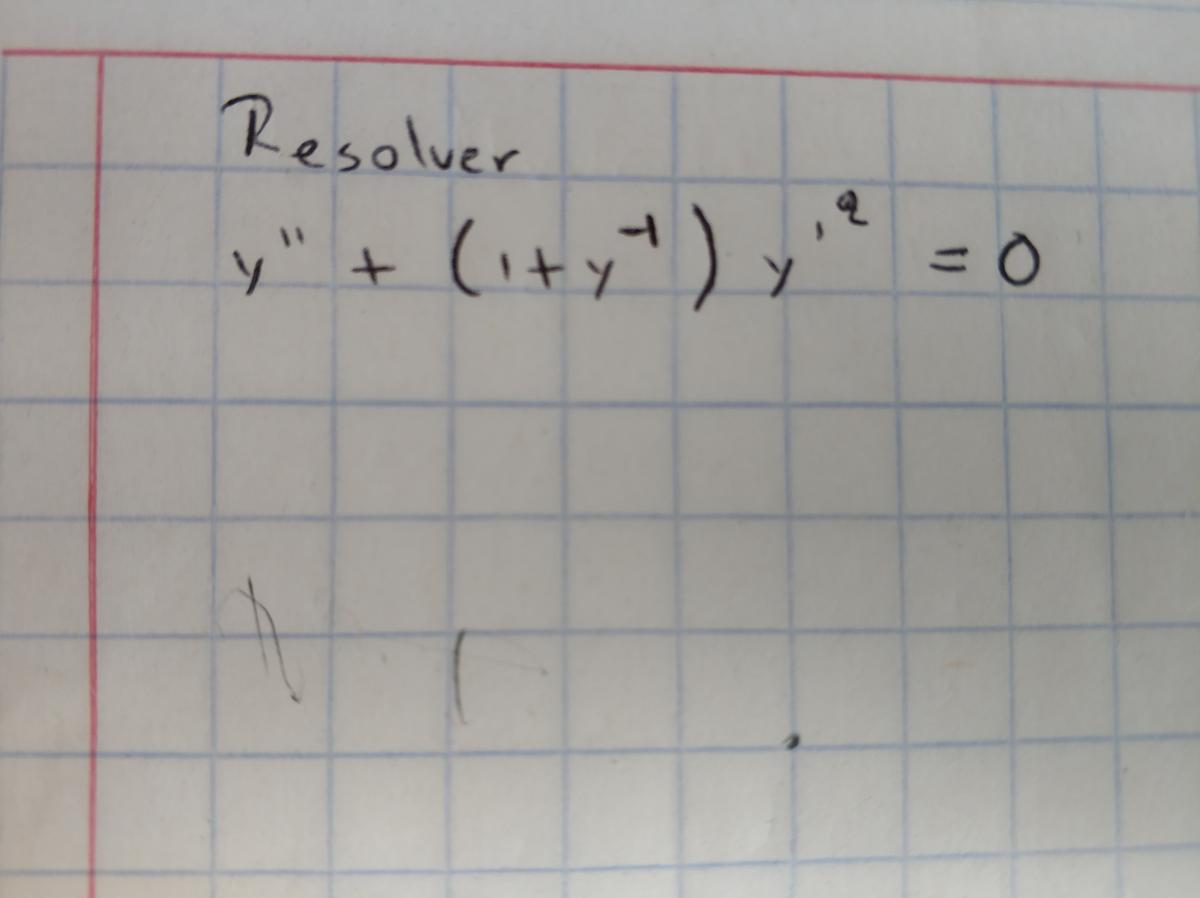 Resolver
y'' + (1+y⁻¹) y'² = 0